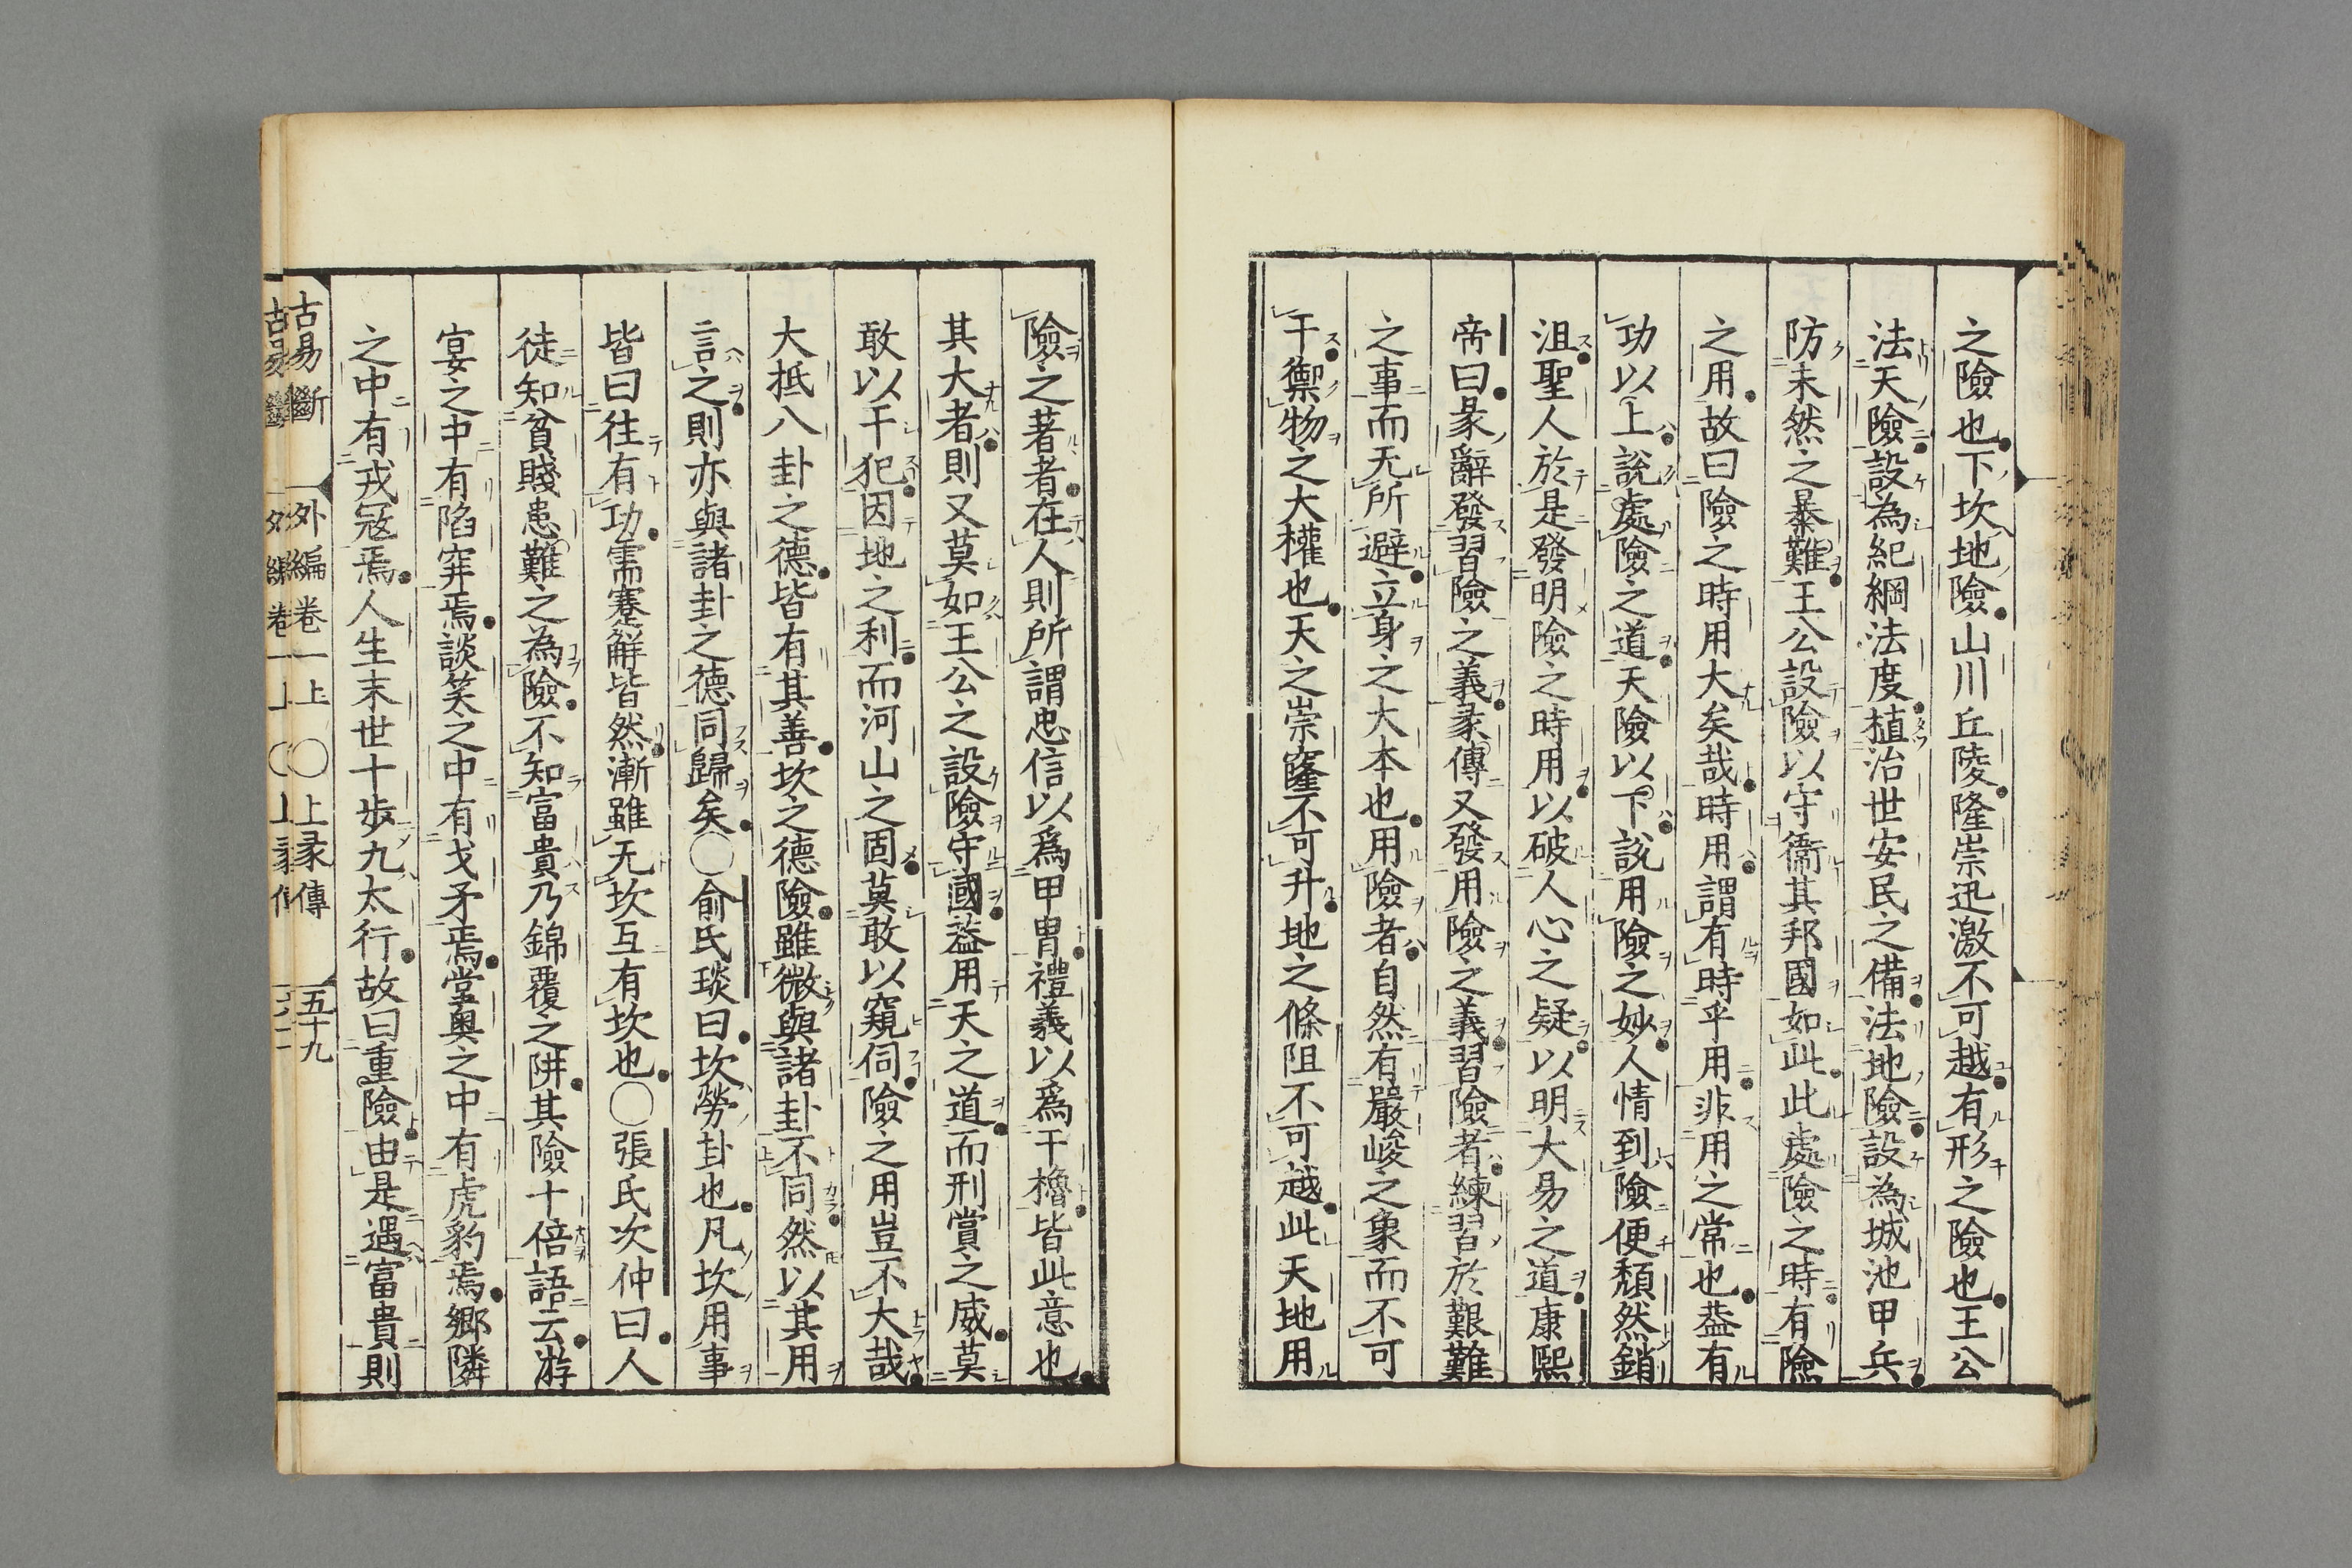 之險也下坎地險山川丘陵隆崇迅激不可越有形之險也王公
法天險設為紀綱法度植治世安民之備法地險設為城池甲兵
防未然之暴難王公設險以守衞其邦國如此此處險之時有險
之用故曰險之時用大矣哉時用謂有時乎用非用之常也蓋有
功以上說處險之道天險以下說用險之妙人情到險便頽然銷
沮聖人於是發明險之時用以破人心之疑以明大易之道康熙
帝曰彖辭發習險之義彖傳又發用險之義習險者練習於艱難
之事而无所避立身之大本也用險者自然有嚴峻之象而不可
干禦物之大權也天之崇窿不可升地之條阻不可越此天地用
險之著者在人則所謂忠信以爲甲冑禮義以爲干櫓皆此意也
其大者則又莫如王公之設險守國蓋用天之道而刑賞之威莫
敢以干犯因地之利而河山之固莫敢以窺伺險之用豈不大哉
大抵八卦之德皆有其善坎之德險雖微與諸卦不同然以其用
言之則亦與諸卦之德同歸矣〇俞氏琰曰坎勞卦也凡坎用事
皆曰往有功需蹇解皆然漸雖无坎互有坎也〇張氏次仲曰人
徒知貧賤患難之為險不知富貴乃錦覆之阱其險十倍語云游
宴之中有陷穽焉談笑之中有戈矛焉堂奧之中有虎豹焉鄉隣
之中有戎冦焉人生末世十步九太行故曰重險由是遇富貴則
古易斷　外編卷一上　〇上彖傳　五十九